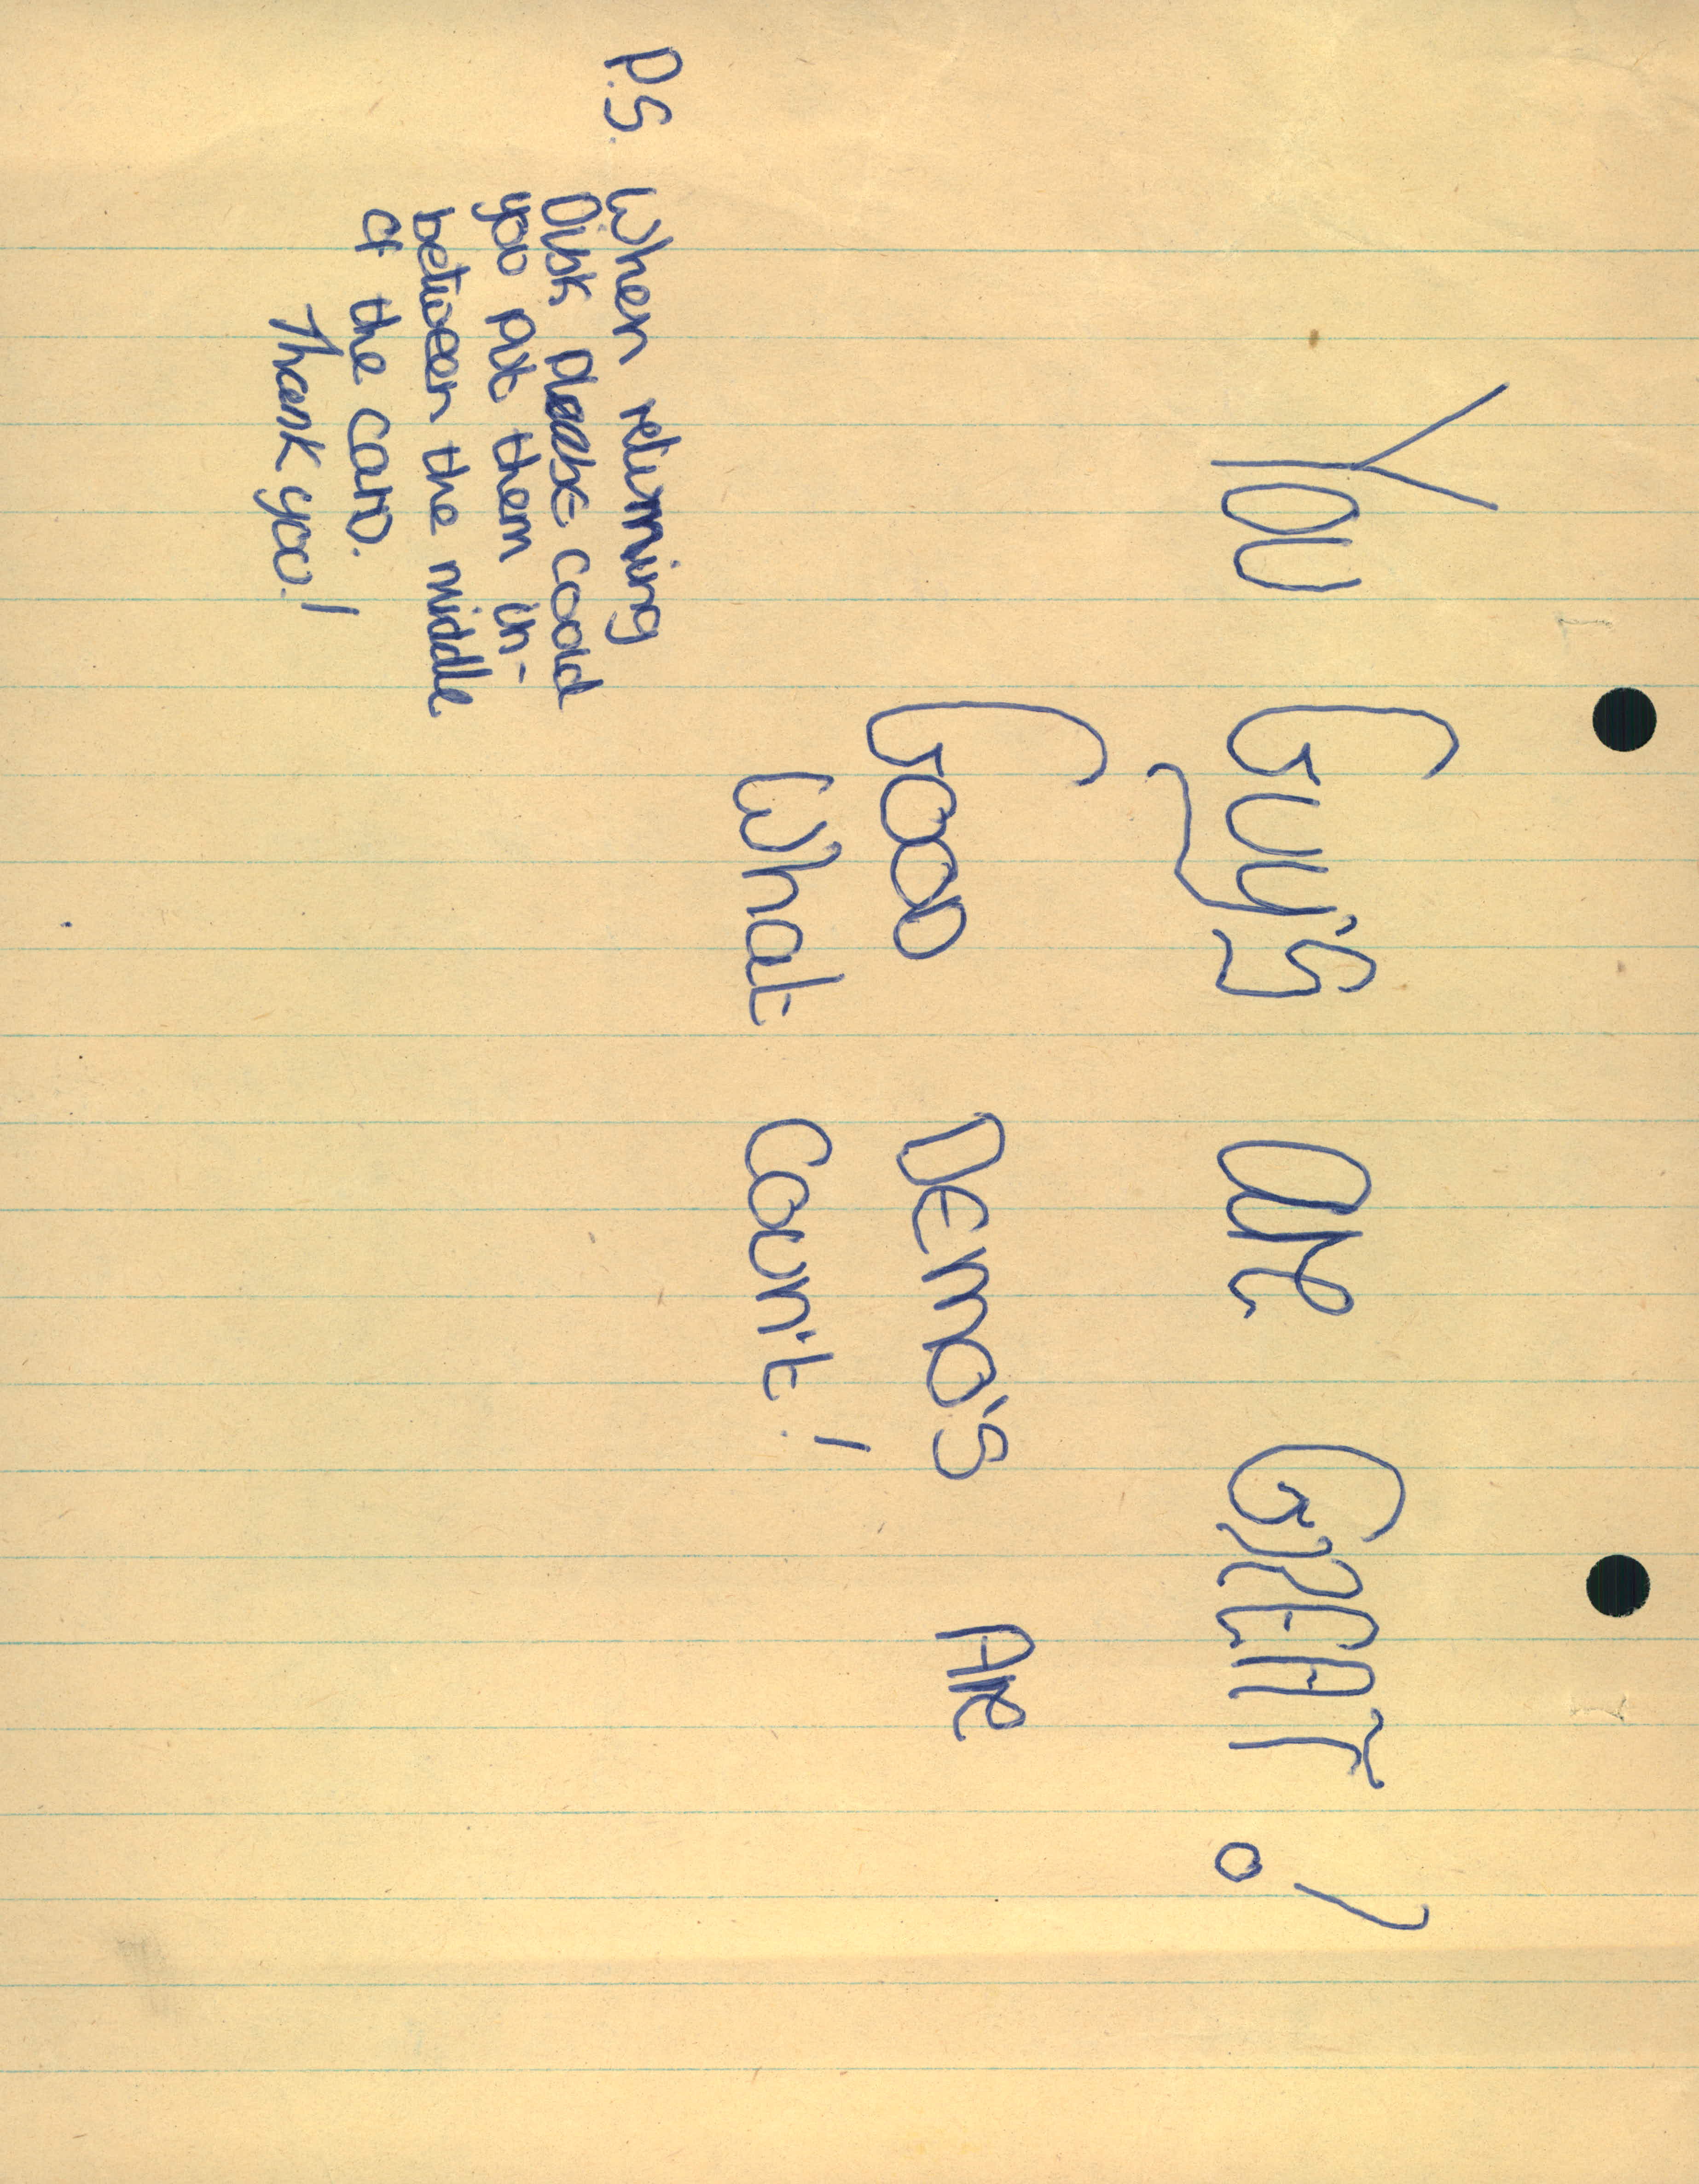 You Guy's are GREAT!
GOOD DEMO'S ARE
What Coun't!
P.S. When returning
Disk please could
you put them in-
between the middle
of the card.
Thank you!